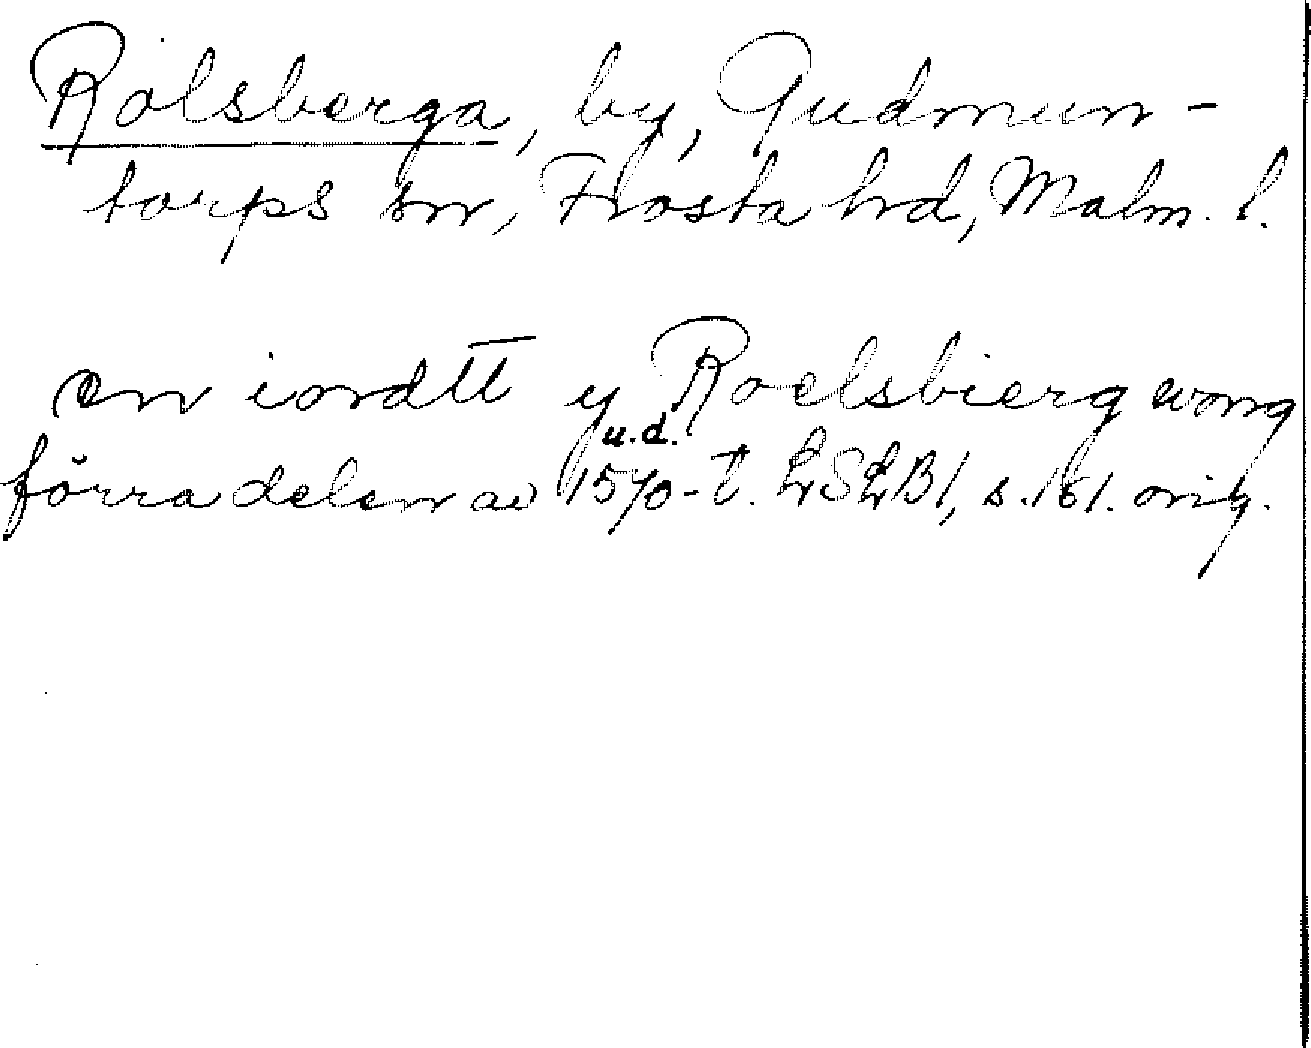 Rolsberga, by, Gudmun-
torps sn, Frosta hrd, Malm. l.
en iordtt y Roelsbierg wong
u.d.
förra delen av 1570-t. LSLB1, s. 161. orig.